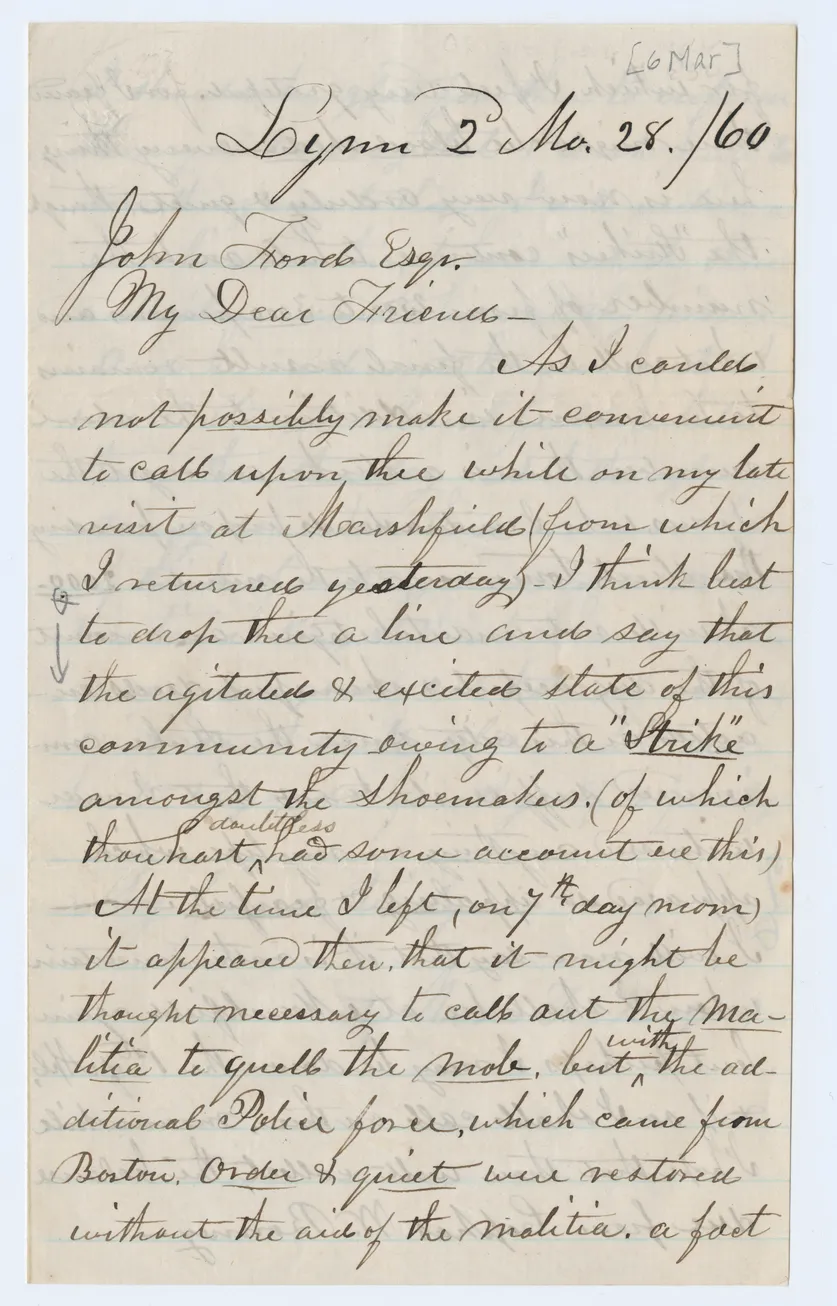 [6 Mar]
Lynn 2 Mo. 28. /60
John Ford Esqr.
My Dear Friend—
As I could
not possibly make it convenient
to call upon thee while on my late
visit at Marshfield (from which
I returned yesterday) - I think best
to drop thee a line and say that
the agitated & excited state of this
community owing to a "Strike"
amongst the shoemakers. (of which
doubtless
thou hast ^ had some account ere this)
At the time I left, on 7th day morn)
it appeared then, that it might be
thought necessary to call out the ma-
litia to quell the mob, but ^ the ad-
with
ditional Police force, which came from
Boston. Order & quiet were restored
without the aid of the malitia. a fact